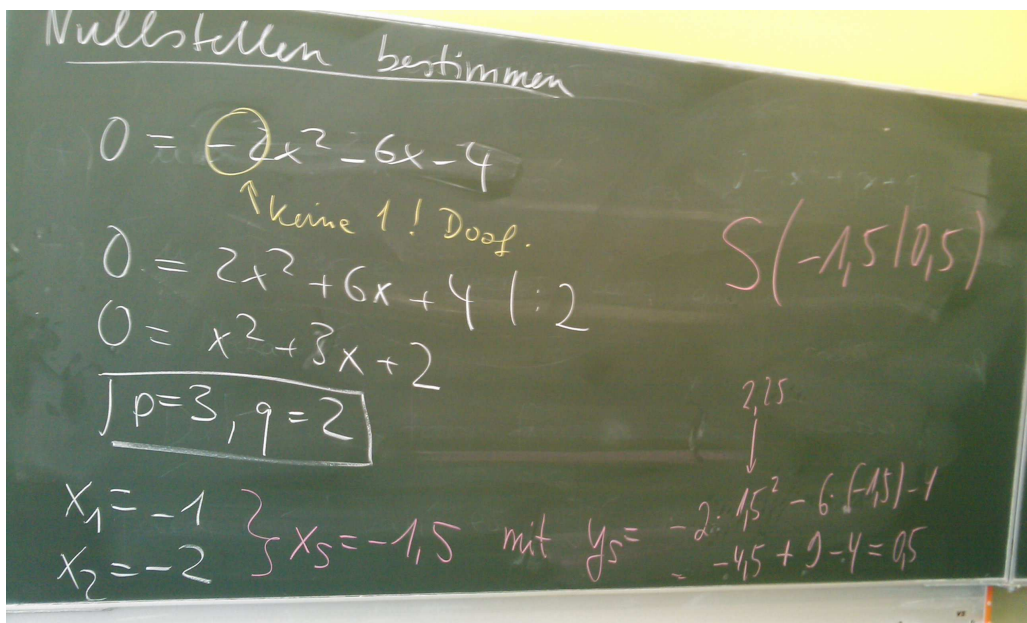 Nullstellen bestimmen
0 = -2x² - 6x - 4
↑ Keine 1! Doof.
0 = 2x² + 6x + 4 | : 2
0 = x² + 3x + 2
p=3, q=2
x₁ = -1
x₂ = -2
} xₛ = -1,5 mit yₛ = -2 · 1,5² - 6 · (-1,5) - 4
= -4,5 + 9 - 4 = 0,5
2,25
↓
S(-1,5|0,5)